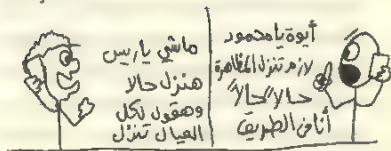 أيوة يا محمود
لازم تنزل المظاهرة
حالاً حالاً
أنا في الطريق
ماشي يا ريس
هنزل حالا
وهقول لكل
العيال تنزل